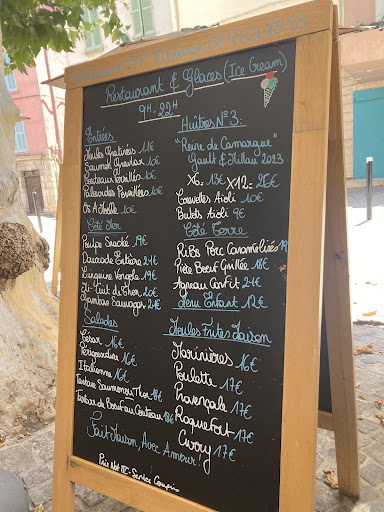 Restaurant & Glaces (Ice Cream)
9H-22H
Entrées
Moules Gratinées 11€
Saumon Gravlax 10€
Couteaux Persillés 10€
Palourdes Persillées 10€
Os A Moelle 10€
Côté Mer
Poulpe Snacké 19€
Daurade Entière 24€
Linguine Vongole 19€
Mi-Cuit de Thon 20€
Gambas Sauvages 24€
Salades
César 16€
Périgourdine 16€
Italienne 16€
Tartare Saumon ou Thon 18€
Tartare de Boeuf au Couteau 18€
Fait Maison, Avec Amour!
Prix Net TTC - Service Compris
Huîtres N°3:
"Reine de Camargue"
Gault & Millau 2023
X6= 13€ X12= 26€
Crevettes Aioli 10€
Bulots Aioli 9€
Côté Terre
Ribs Porc Caramélisés 19
Pièce Boeuf Grillée 18€
Agneau Confit 24€
Menu Enfant 12€
Moules Frites Maison
Marinières 16€
Poulette 17€
Provençale 17€
Roquefort 17€
Curry 17€